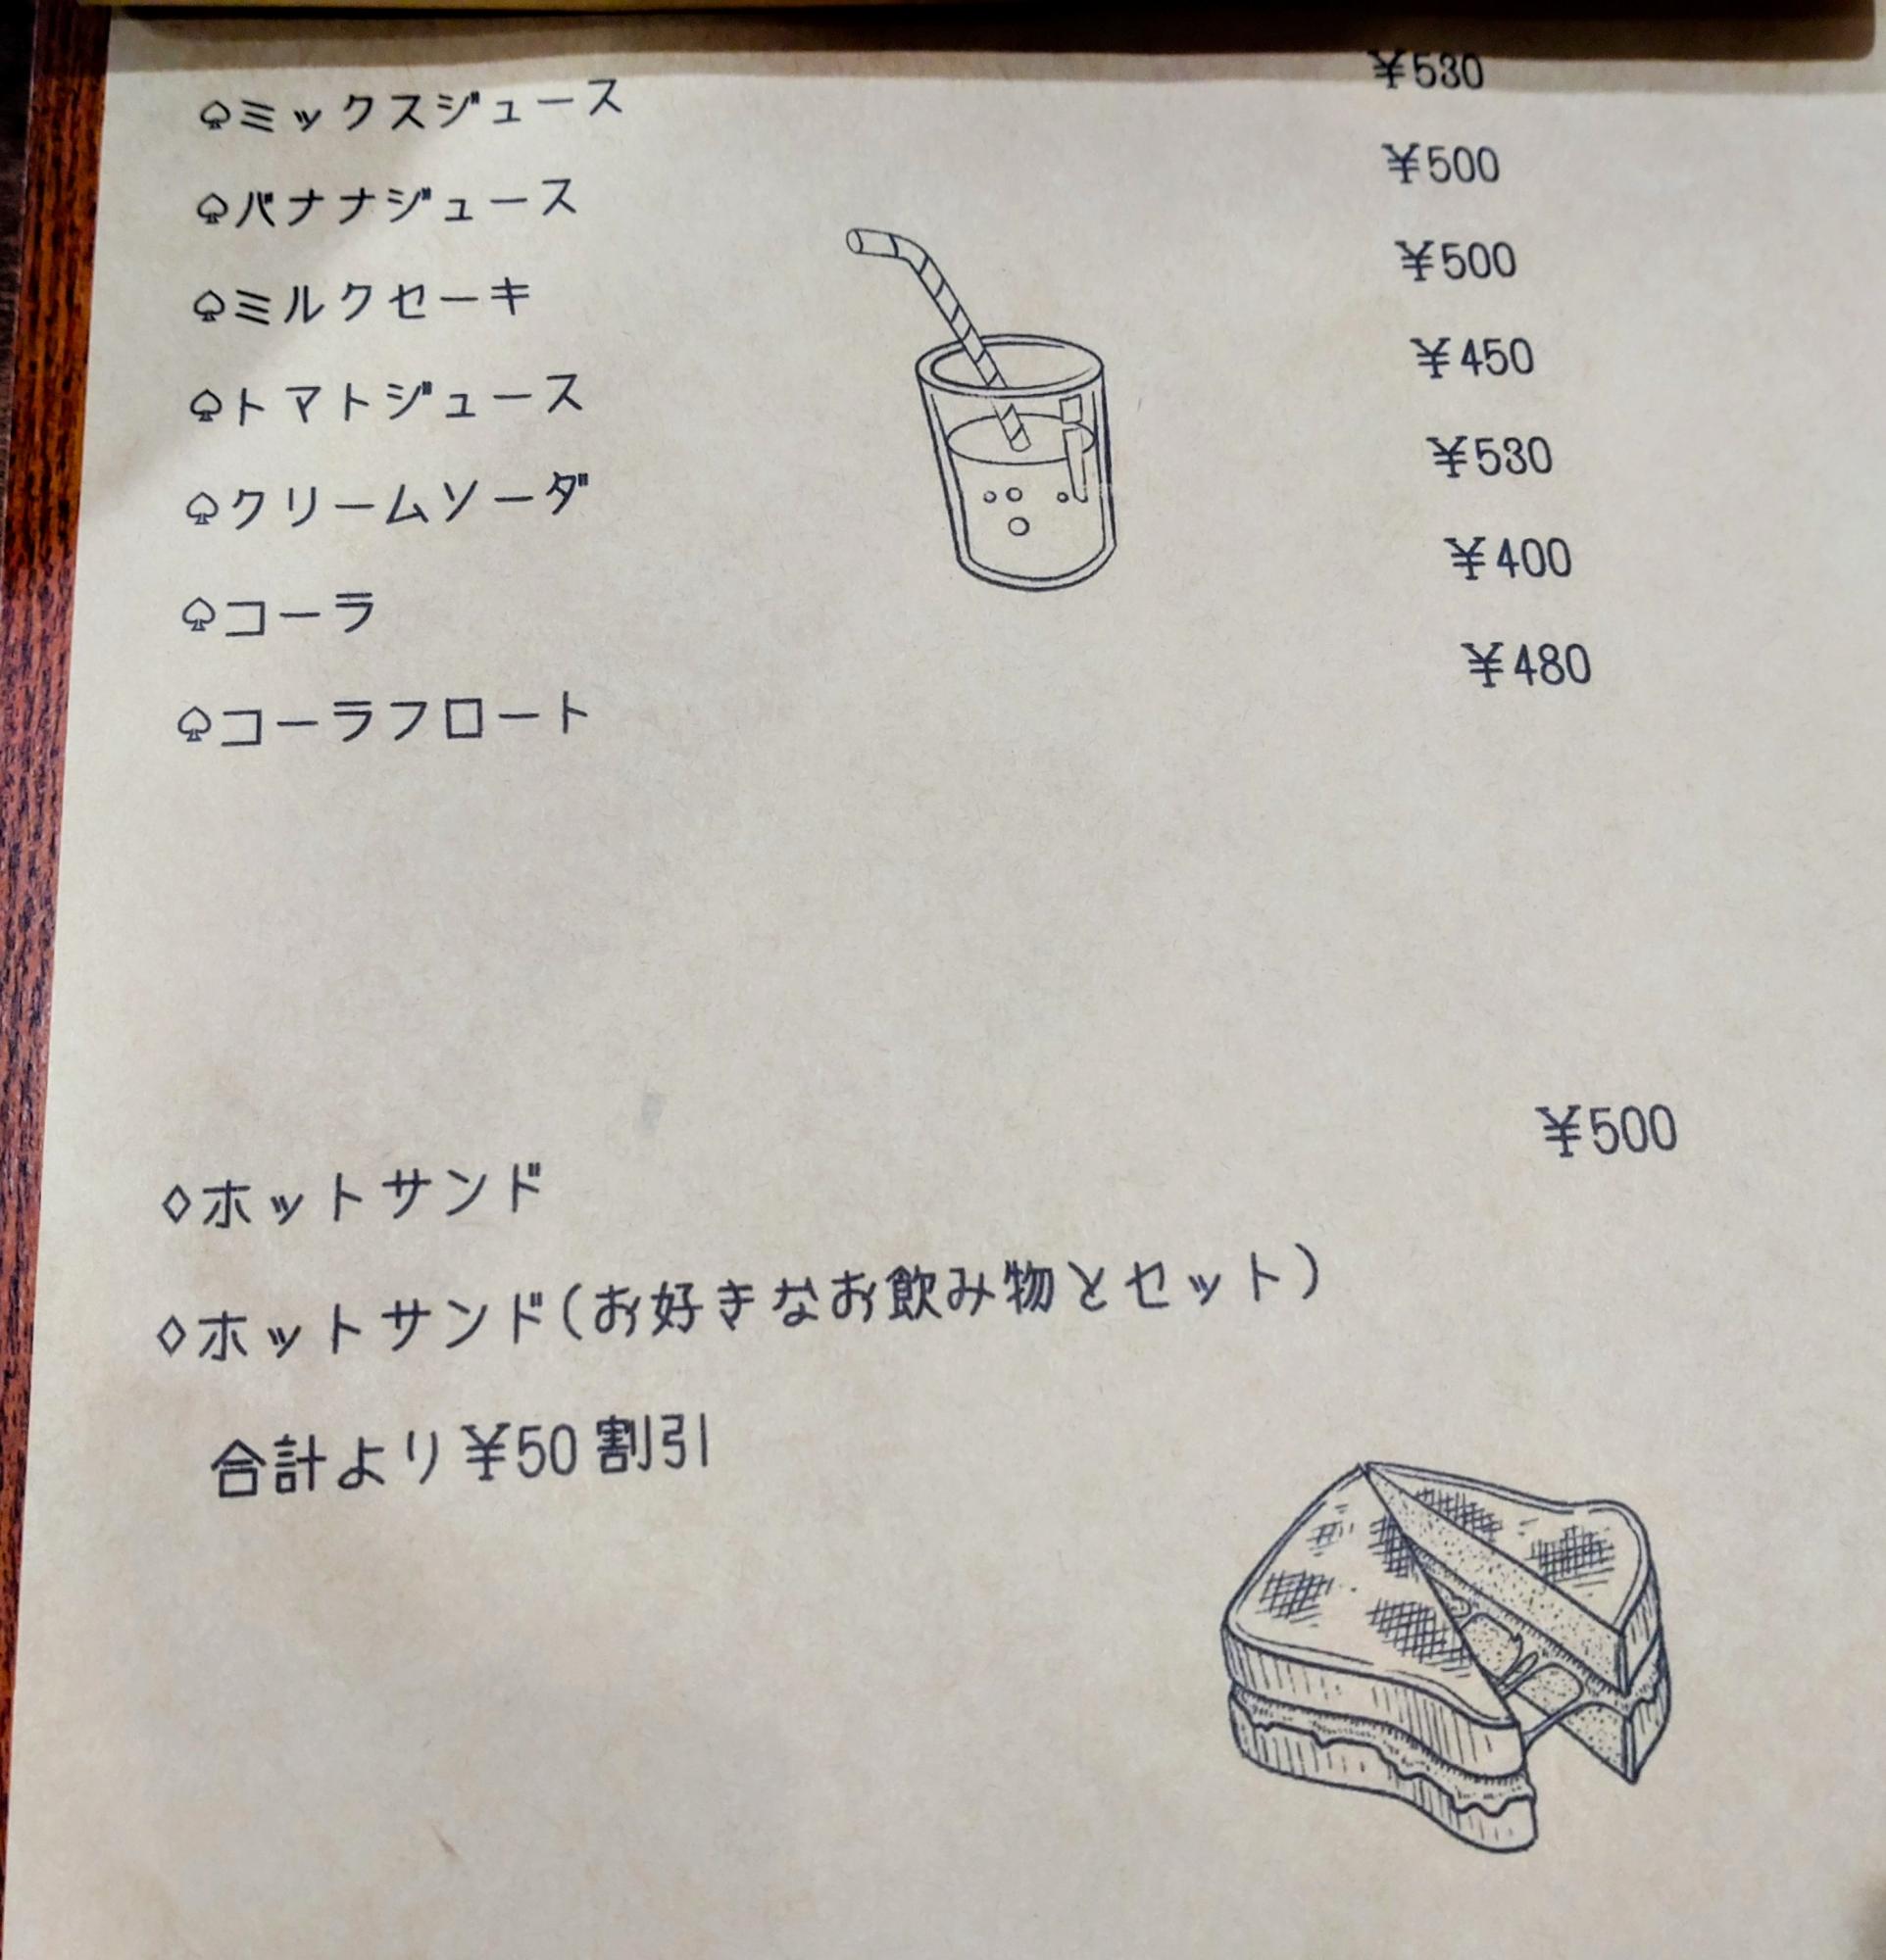 ♤ミックスジュース ¥530
♤バナナジュース ¥500
♤ミルクセーキ ¥500
♤トマトジュース ¥450
♤クリームソーダ ¥530
♤コーラ ¥400
♤コーラフロート ¥480
◇ホットサンド ¥500
◇ホットサンド(お好きなお飲み物とセット)
合計より¥50割引